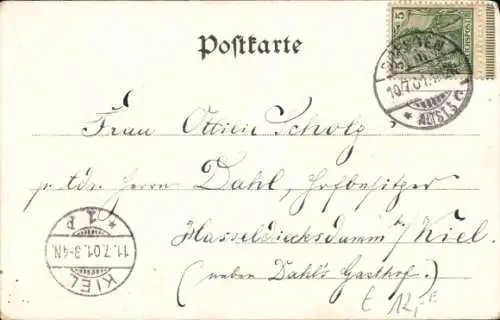 Postkarte
5
DRESDEN
10.7.01
* ALTST. 5
Frau Ottilie Scholz
p. Adr. Herrn Dahl, Hofbesitzer
Hasseldieksdamm b/ Kiel.
(neben Dahl's Gasthof.)
* 1 P
11.7.01.3-4N.
KIEL
12,-